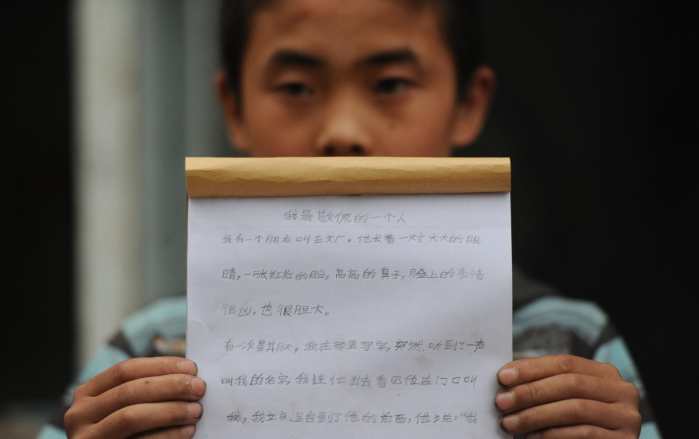 我最敬佩的一个人
我有一个朋友叫王大广。他长着一双大大的眼
睛，一张红红的脸，高高的鼻子，脸上的表情
很凶，也很胆大。
有一次星期六，我在家里写字，突然听到一声
叫我的名字，我连忙出去看 门口叫
我，我立 到了他的 面，他